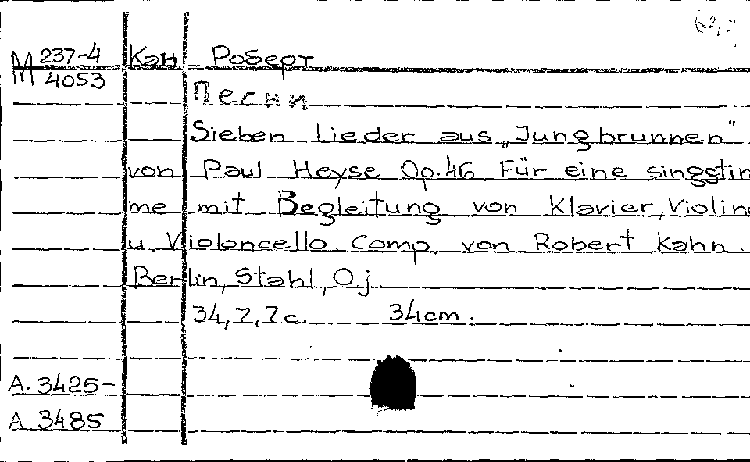 М 237-4 Кан Роберт
4053
Песни
Sieben Lieder aus „Jungbrunnen"
von Paul Heyse Op.46 Für eine singstim
me mit Begleitung von Klavier, Violin
u. Violoncello Comp. von Robert Kahn.
Berlin, Stahl, O.j.
34, 7, 7 c. 34 cm.
A. 3425-
A 3485